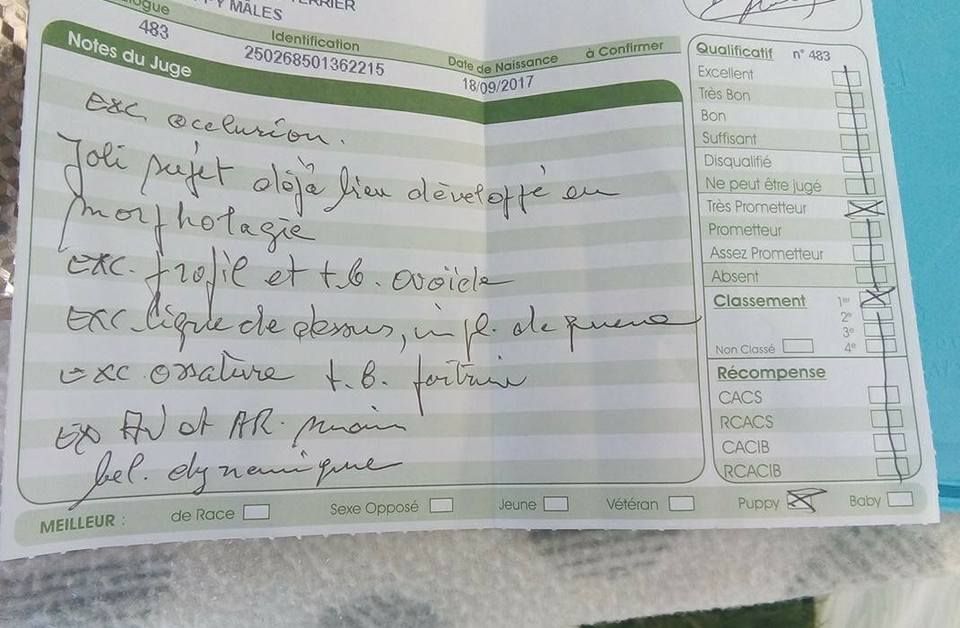 Y MÂLES
Identification
Date de Naissance
à Confirmer
483
250268501362215
18/09/2017
Notes du Juge
Exc occlusion.
Joli sujet déjà bien développé en
morphologie
Exc. profil et t.b. ovoïde
Exc ligne de dessus, de queue
Exc ossature t.b. poitrine
Ex AV et AR.
bel. dynamique
Qualificatif n° 483
Excellent
Très Bon
Bon
Suffisant
Disqualifié
Ne peut être jugé
Très Prometteur
Prometteur
Assez Prometteur
Absent
Classement 1er
2e
3e
Non Classé 4e
Récompense
CACS
RCACS
CACIB
RCACIB
MEILLEUR : de Race Sexe Opposé Jeune Vétéran Puppy Baby